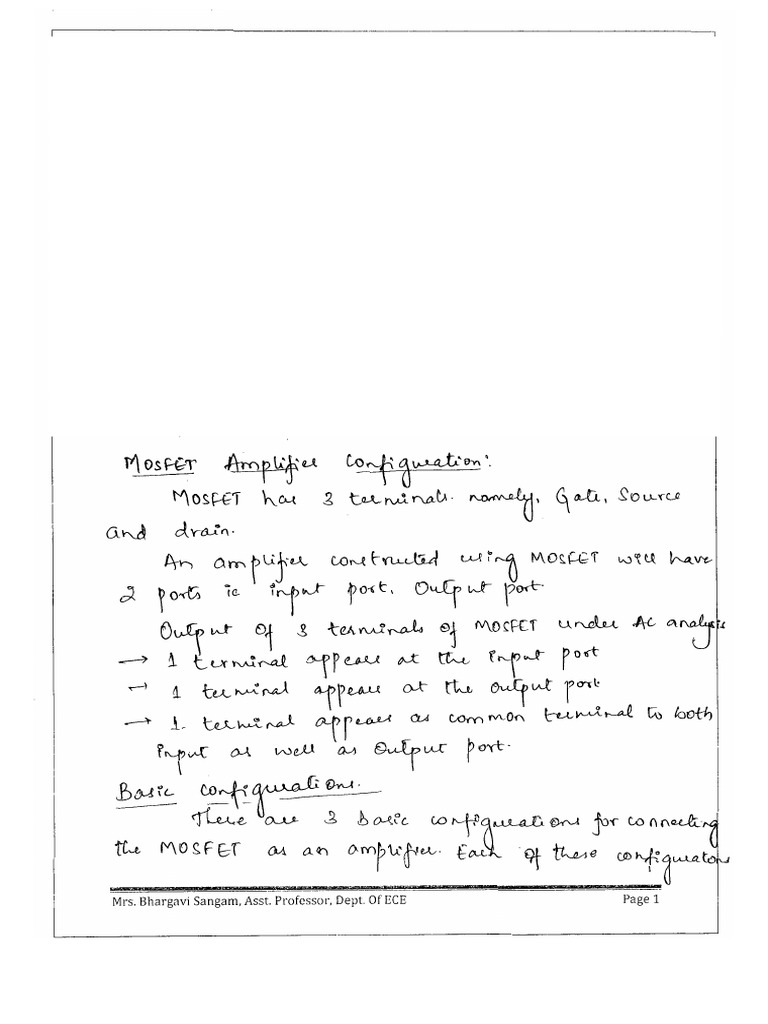 MOSFET Amplifier Configuration:
MOSFET has 3 terminals. namely, Gate, Source
and drain.
An amplifier constructed using MOSFET will have
2 ports ie input port, Output port
Output of 3 terminals of MOSFET under AC analysis
→ 1 terminal appears at the input port
→ 1 terminal appears at the output port
→ 1. terminal appears as common terminal to both
input as well as Output port.
Basic configurations.
There are 3 Basic configurations for connecting
the MOSFET as an amplifier. Each of these configurations
Mrs. Bhargavi Sangam, Asst. Professor, Dept. Of ECE Page 1